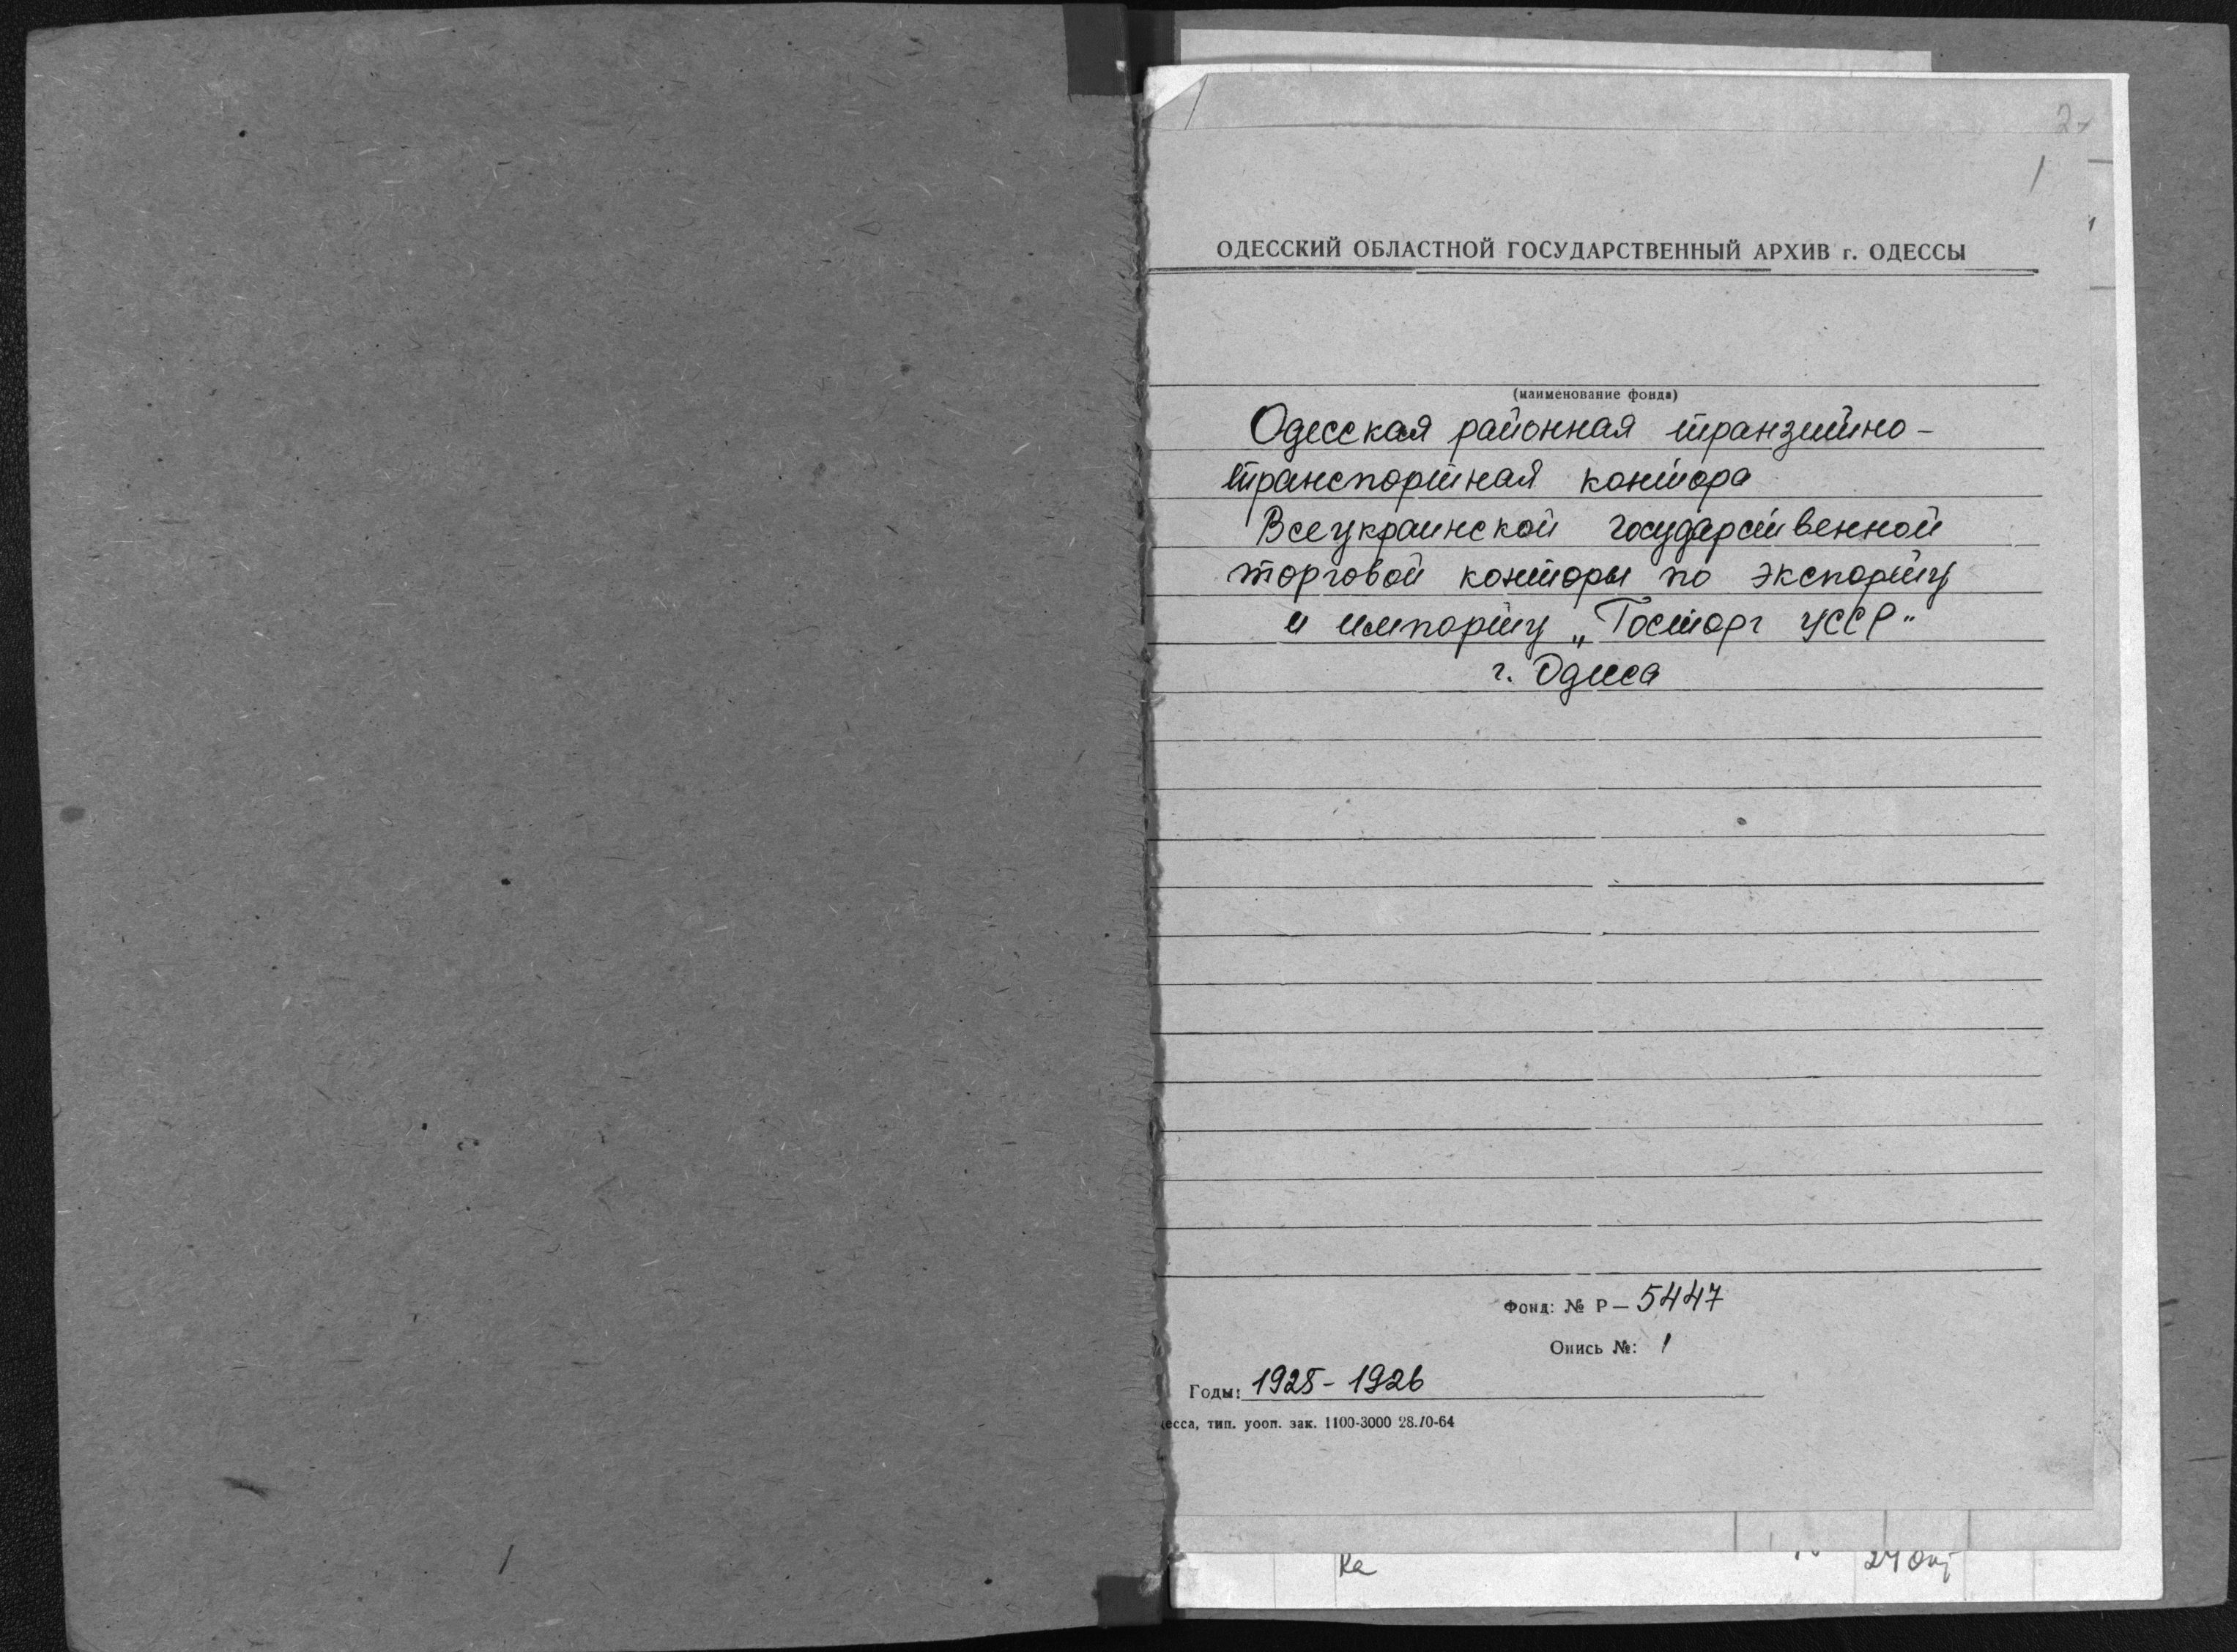 2
1
ОДЕССКИЙ ОБЛАСТНОЙ ГОСУДАРСТВЕННЫЙ АРХИВ г. ОДЕССЫ
(наименование фонда)
Одесская районная транзитно-
транспортная контора
Всеукраинской государственной
торговой конторы по экспорту
и импорту „Госторг УССР"
г. Одесса
Фонд: № Р — 5447
Опись №: 1
Годы: 1925 - 1926
есса, тип. уооп. зак. 1100-3000 28.10-64
ка